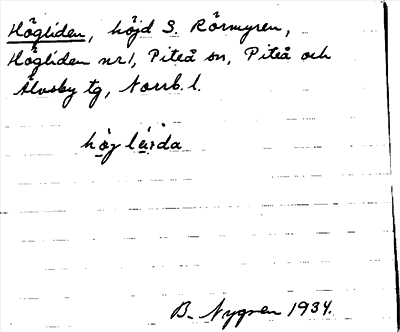 Högliden, höjd S. Rörmyren,
Högliden nr 1, Piteå sn, Piteå och
Älvsby tg, Norrb. l.
B. Nygren 1934.